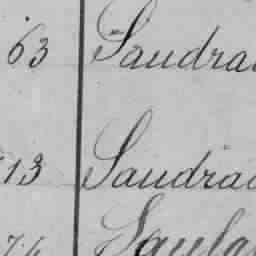 63 Saudra
13 Saudra
74 Saula